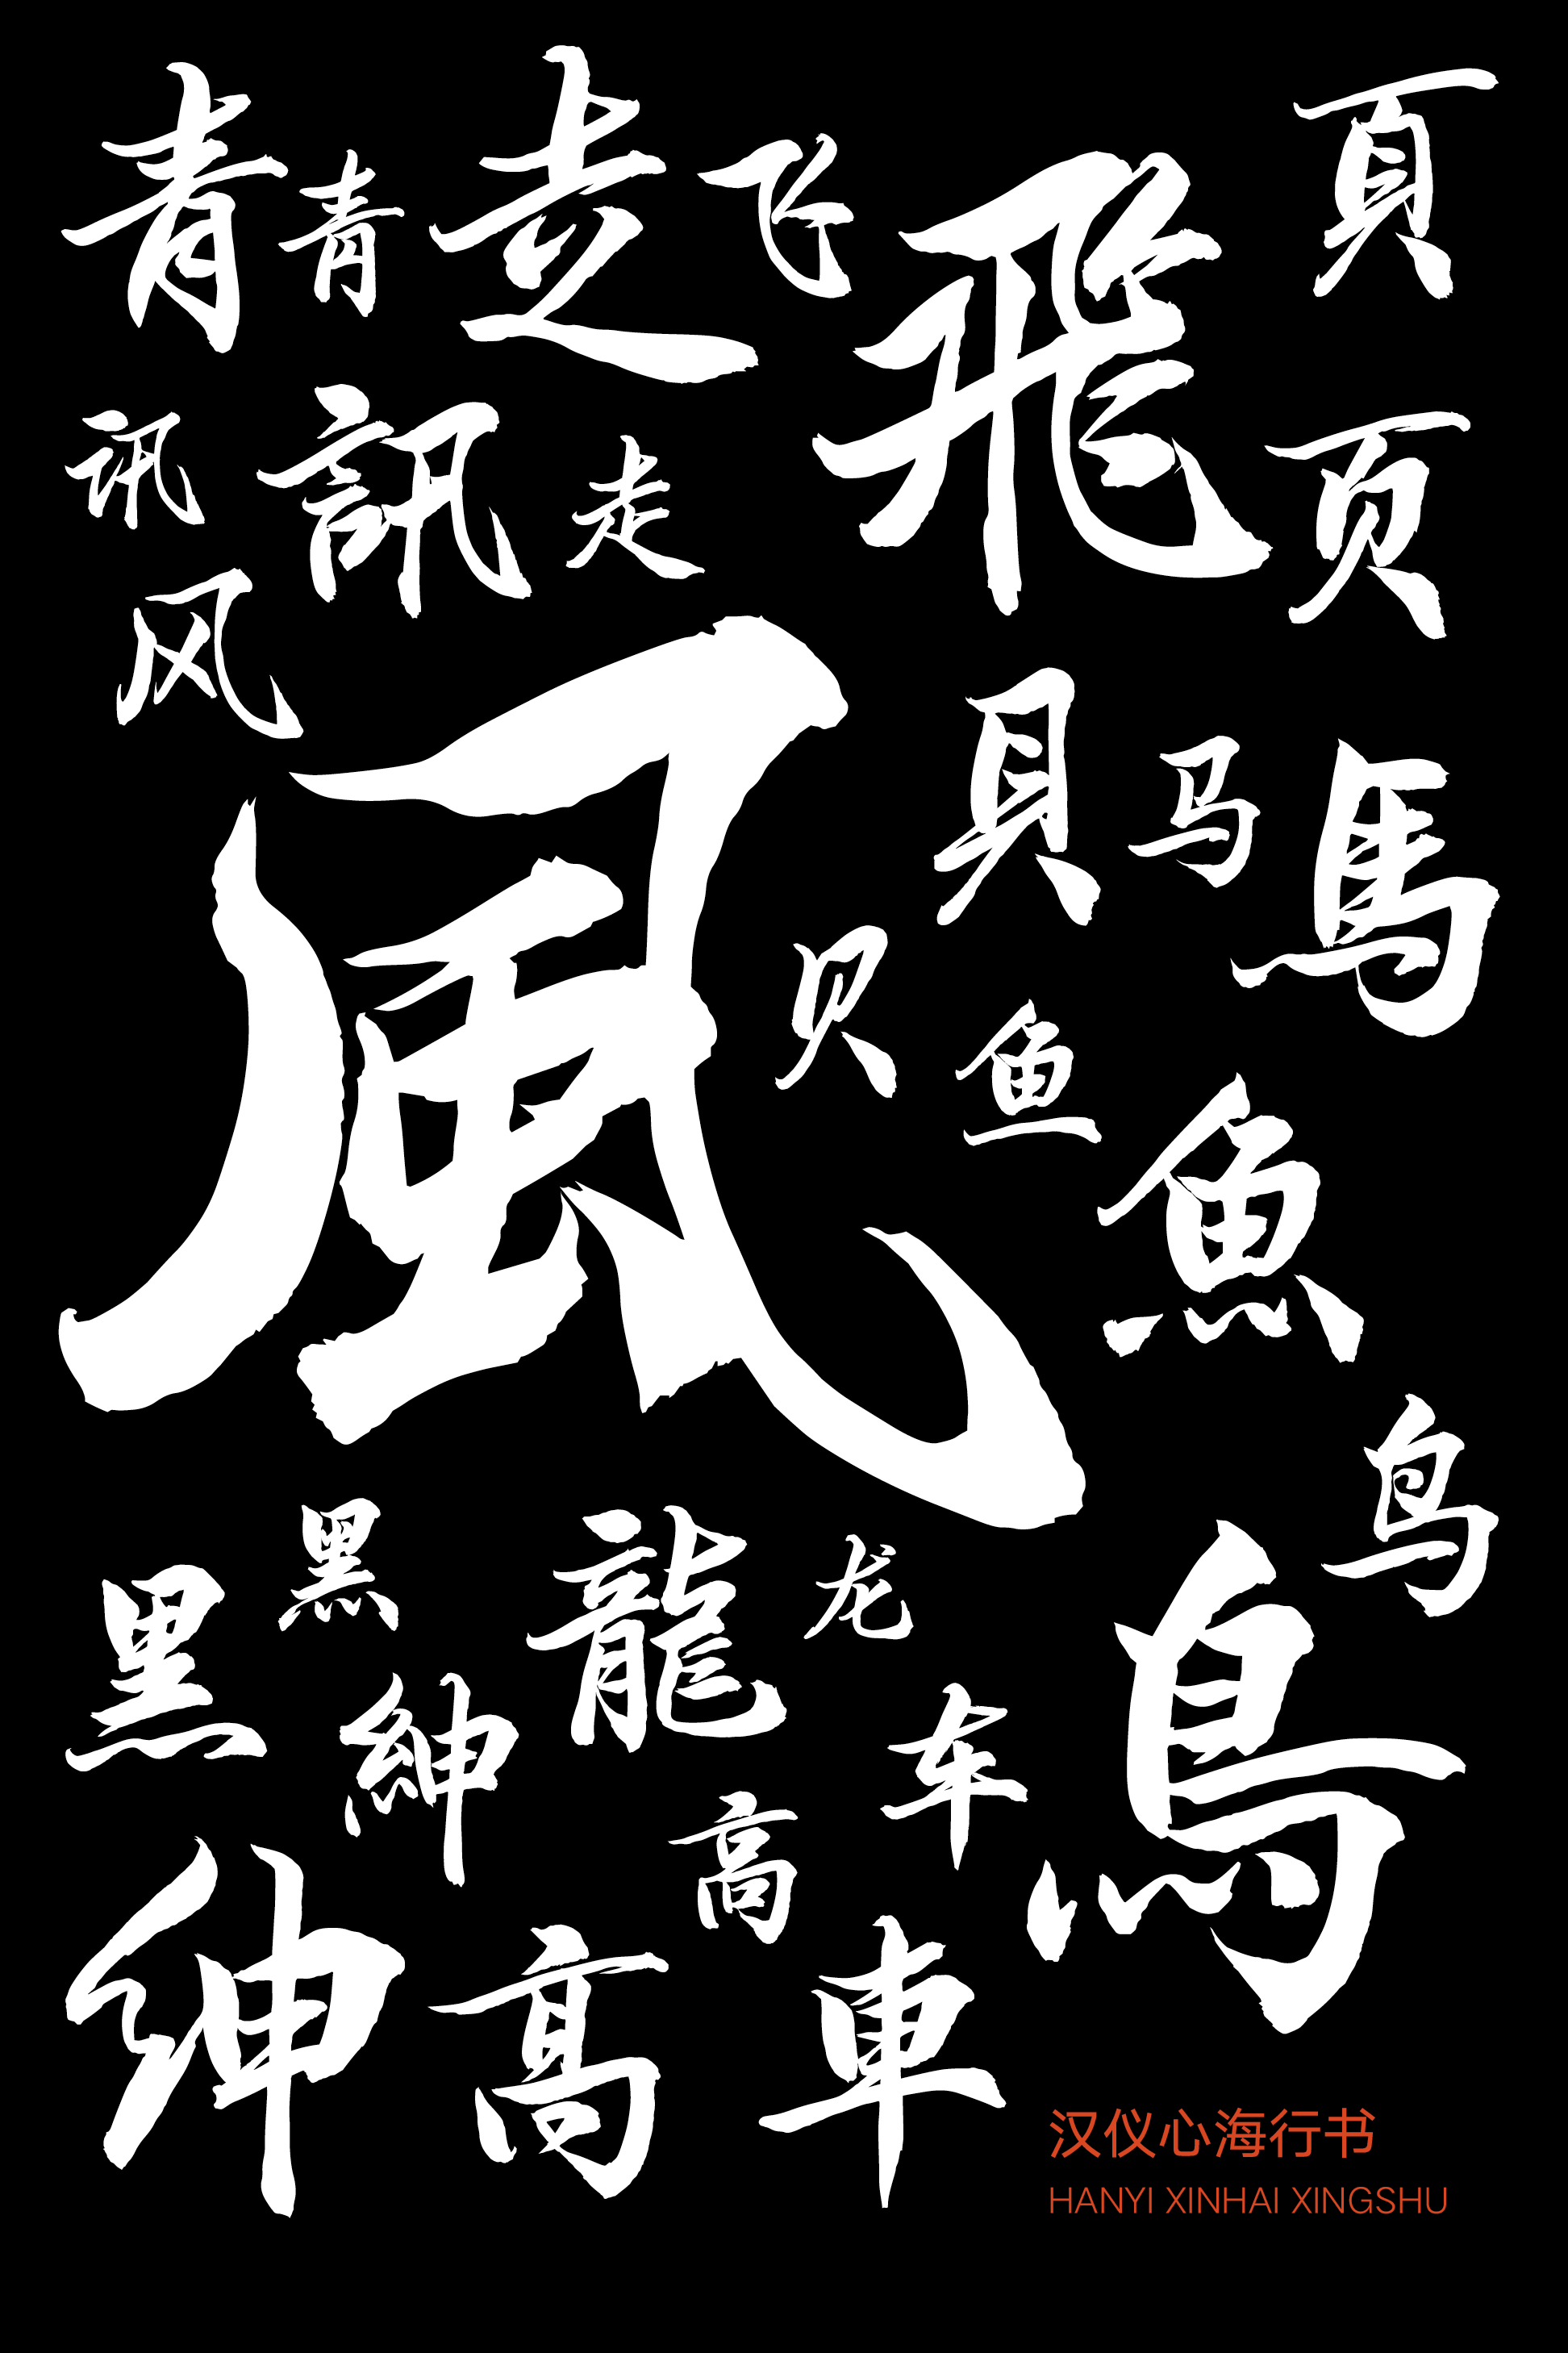 青 青 走 飞 飛 頁
讯 訊 走 页
风
風
貝 马 馬
贝 鱼
魚
鸟
黑 黑 龍 龙
鳥
紳 车
高
绅 車
汉仪心海行书
HANYI XINHAI XINGSHU